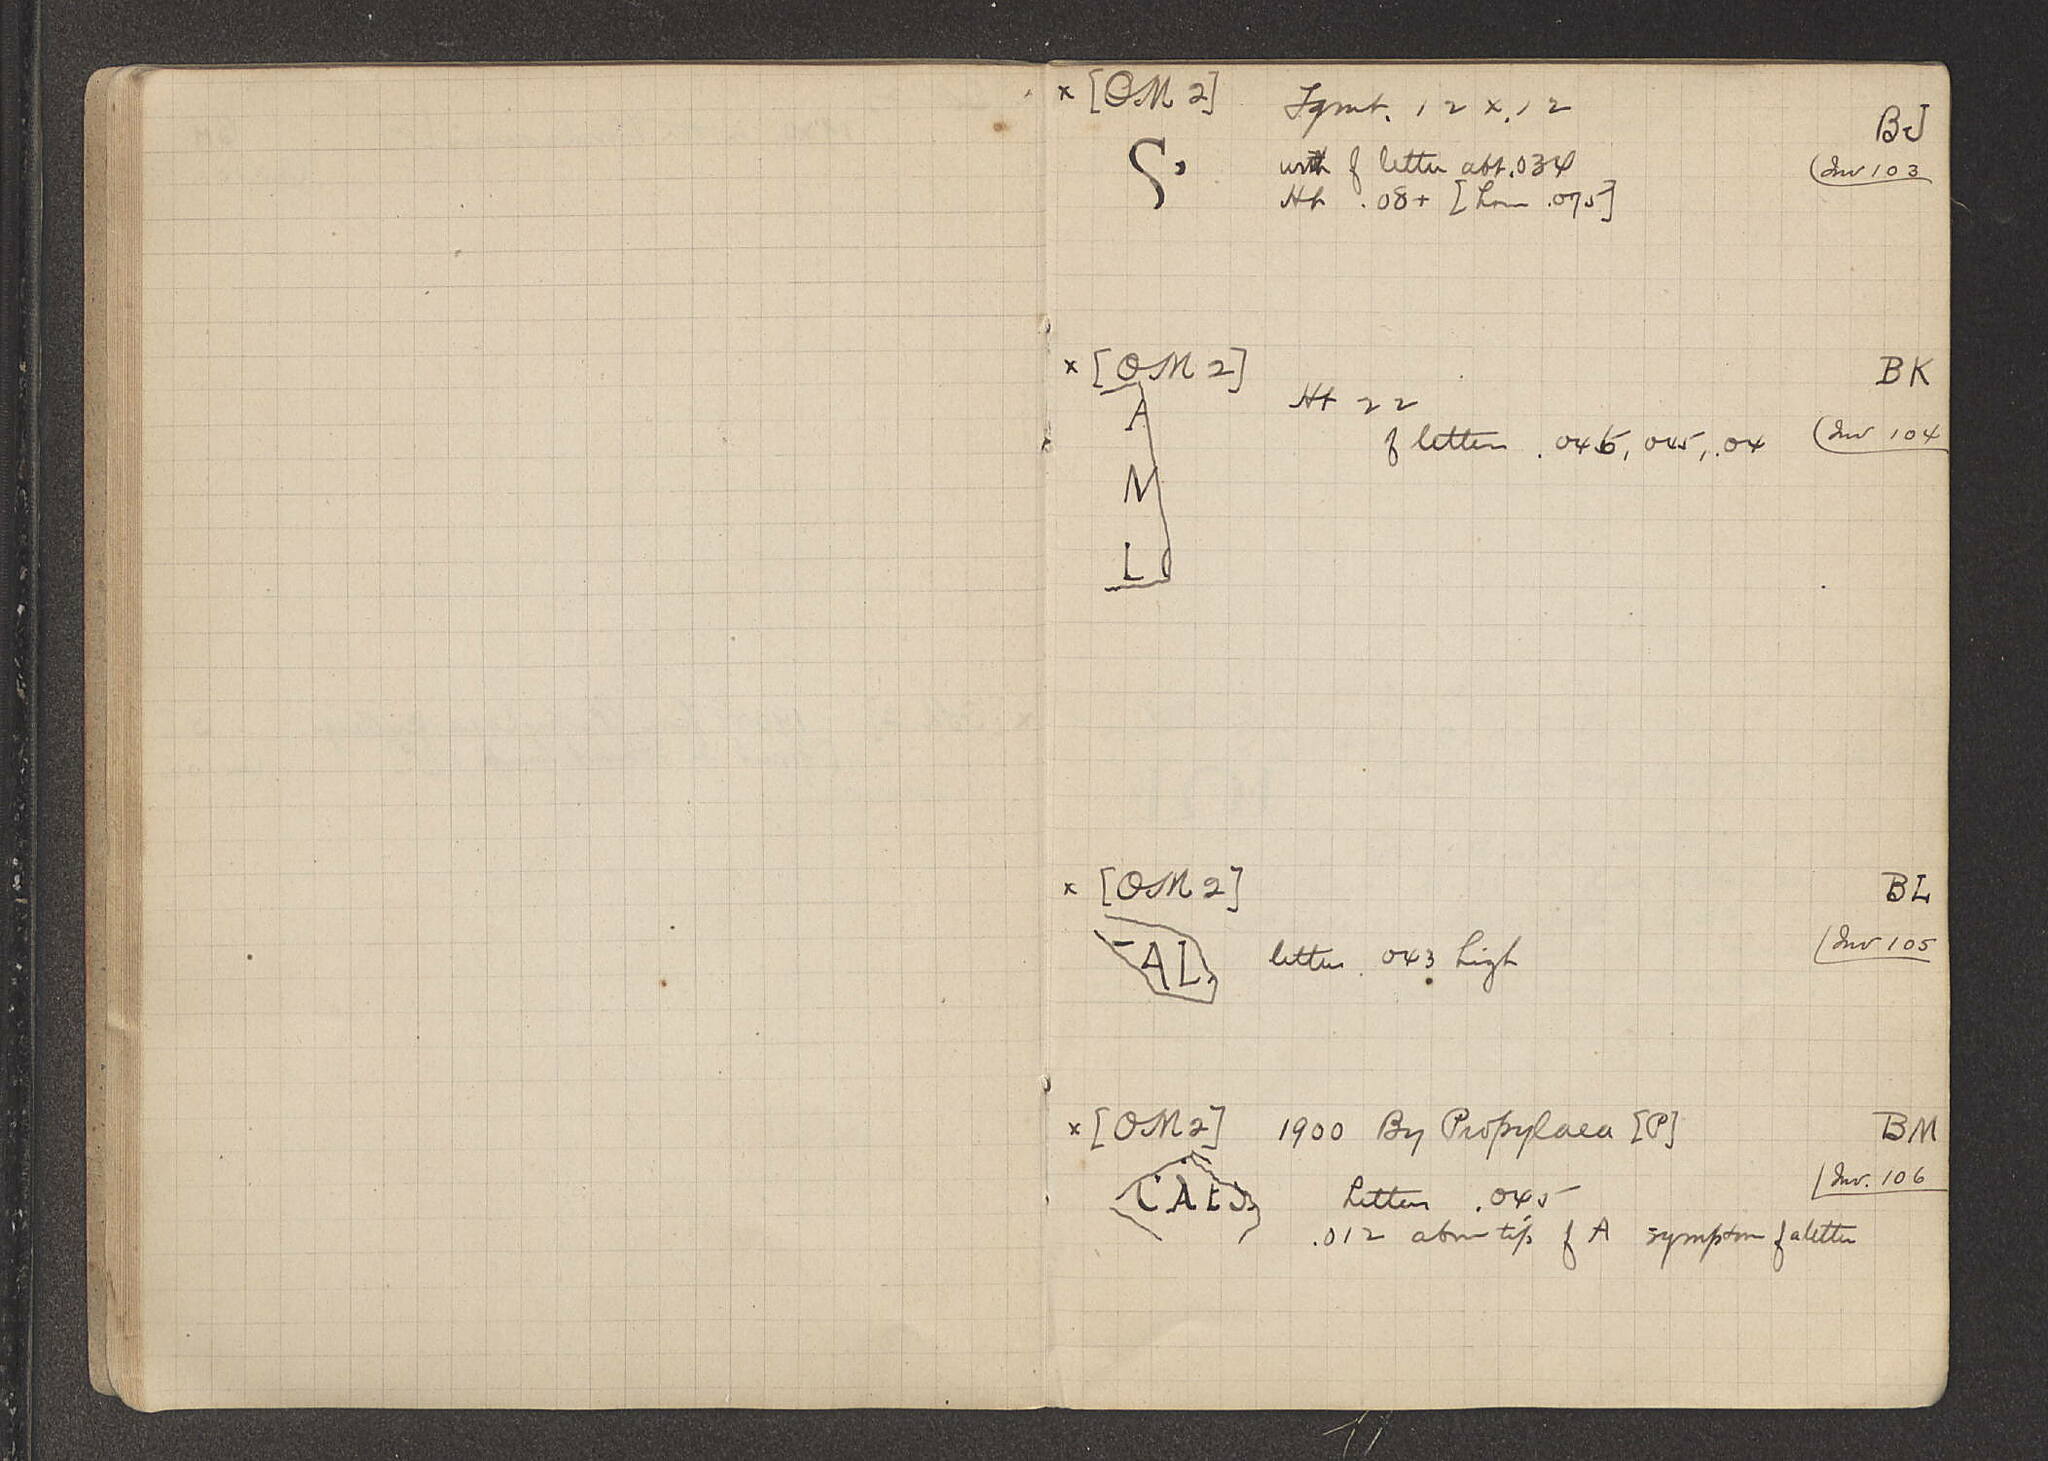 x [OM 2] Fgmt. .12 x .12 BJ
S, width of letter abt .034 (Inv 103
Ht .08+ [hor .075]
x [OM 2] BK
A Ht 22
of letters .045, 045, .04 (Inv 104
N
L
x [OM 2] BL
AL, letters .043 high (Inv 105
x [OM 2] 1900 By Propylaea [P] BM
CAES Letters .045 (Inv. 106
.012 above tip of A symptom of a letter